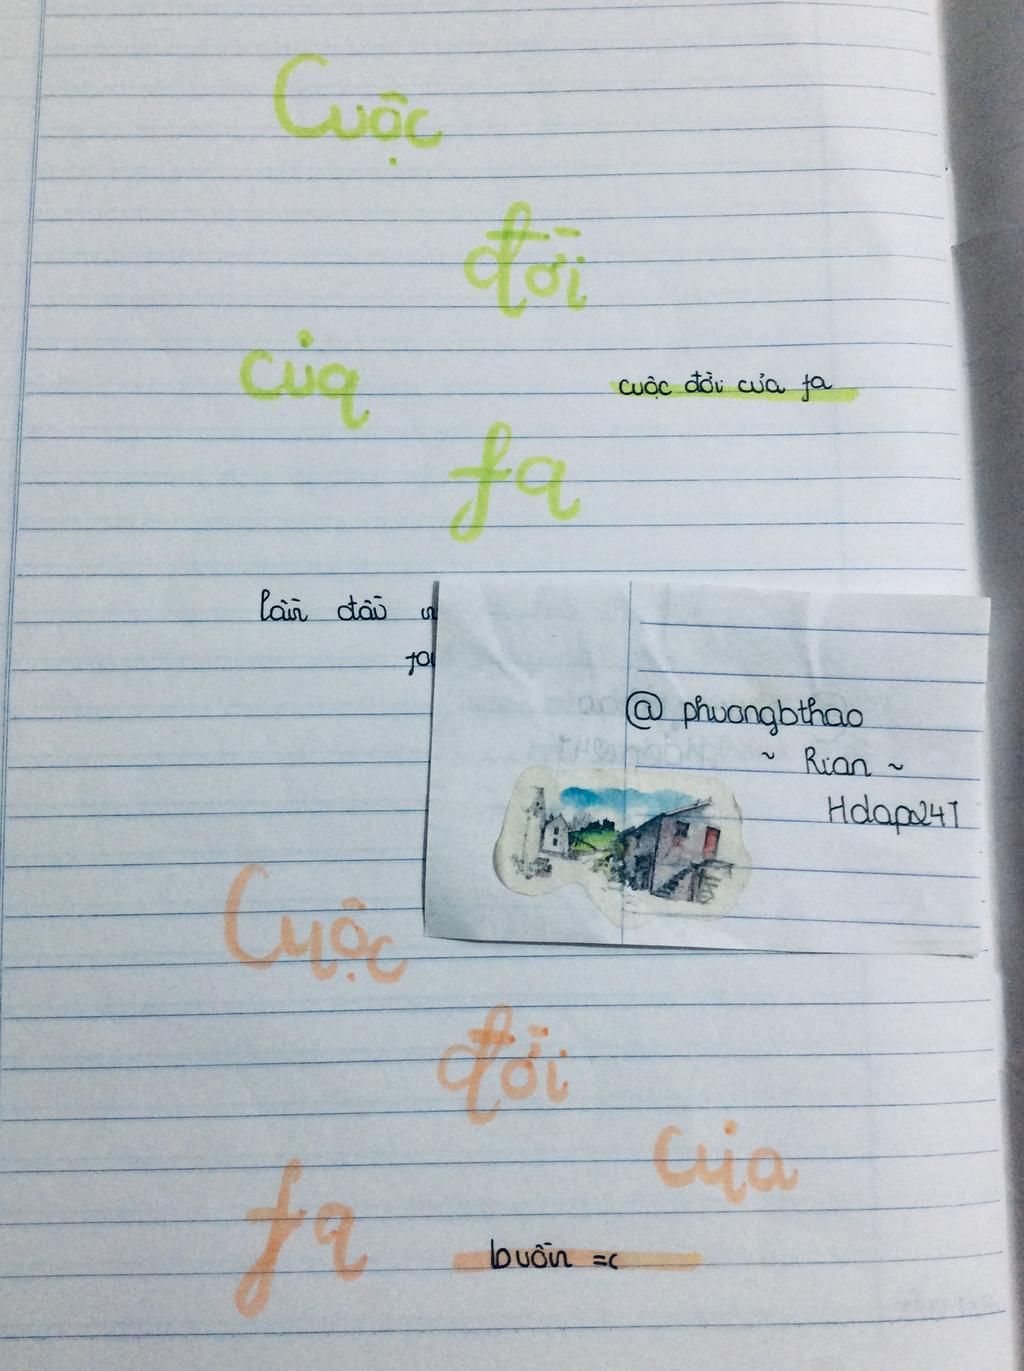 Cuộc
đời
của
fa
cuộc đời của fa
lần đầu
@ phuongbthao
~ Rian ~
Hdap247
Cuộc
đời
của
fa
buồn =(